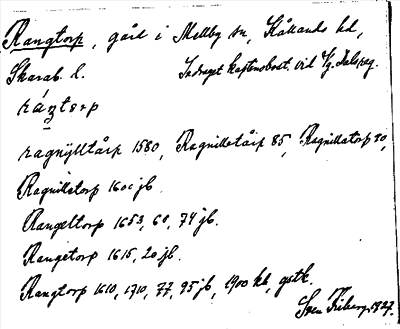 Rangtorp, gård i Mellby sn, Kållands hd,
Skarab. l. Indraget kaptensbost. vid Vg. Dalsreg.
rán̥torp
ragnylltårp 1580, Ragnilletårp 85, Ragnillatorp 90,
Ragnilletorp 1600 jb.
Rangeltorp 1653, 60, 74 jb.
Rangetorp 1615, 20 jb.
Rangtorp 1610, 1710, 77, 95 jb, 1900 kb, gstk.
Sven Friberg. 1927.